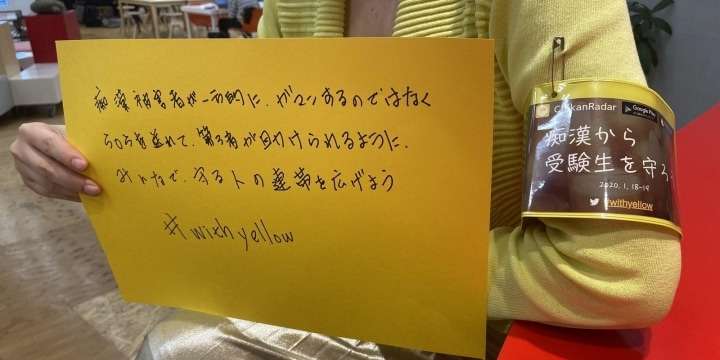 痴漢被害者が一方的に、ガマンするのではなく
声を
て、第3者が助けられるように、
みんなで、守る人の連帯を広げよう
#withyellow
ChikanRadar
Google Play
痴漢から
受験生を守ろ
2020.1.18-19
#withyellow